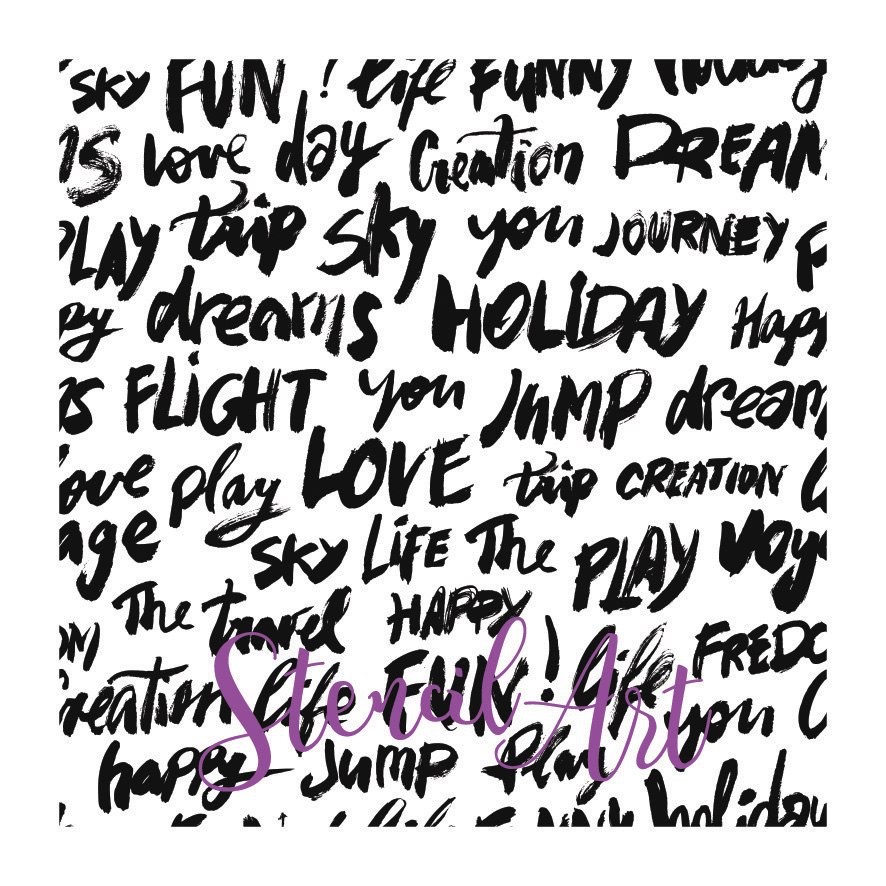 SKY FUN! life FUNNY holiday
MS love day Creation DREAM
PLAY trip Sky you JOURNEY P
py dreams HOLiDAY Happ
ms FLiGHT you JuMP dream
love play LOVE trip CREATION
age SKY LiFE The PLAY Voya
OM The travel HAPPY FREEDO
Creation life FUN! life you C
happy Jump Play holiday
Stencil Art